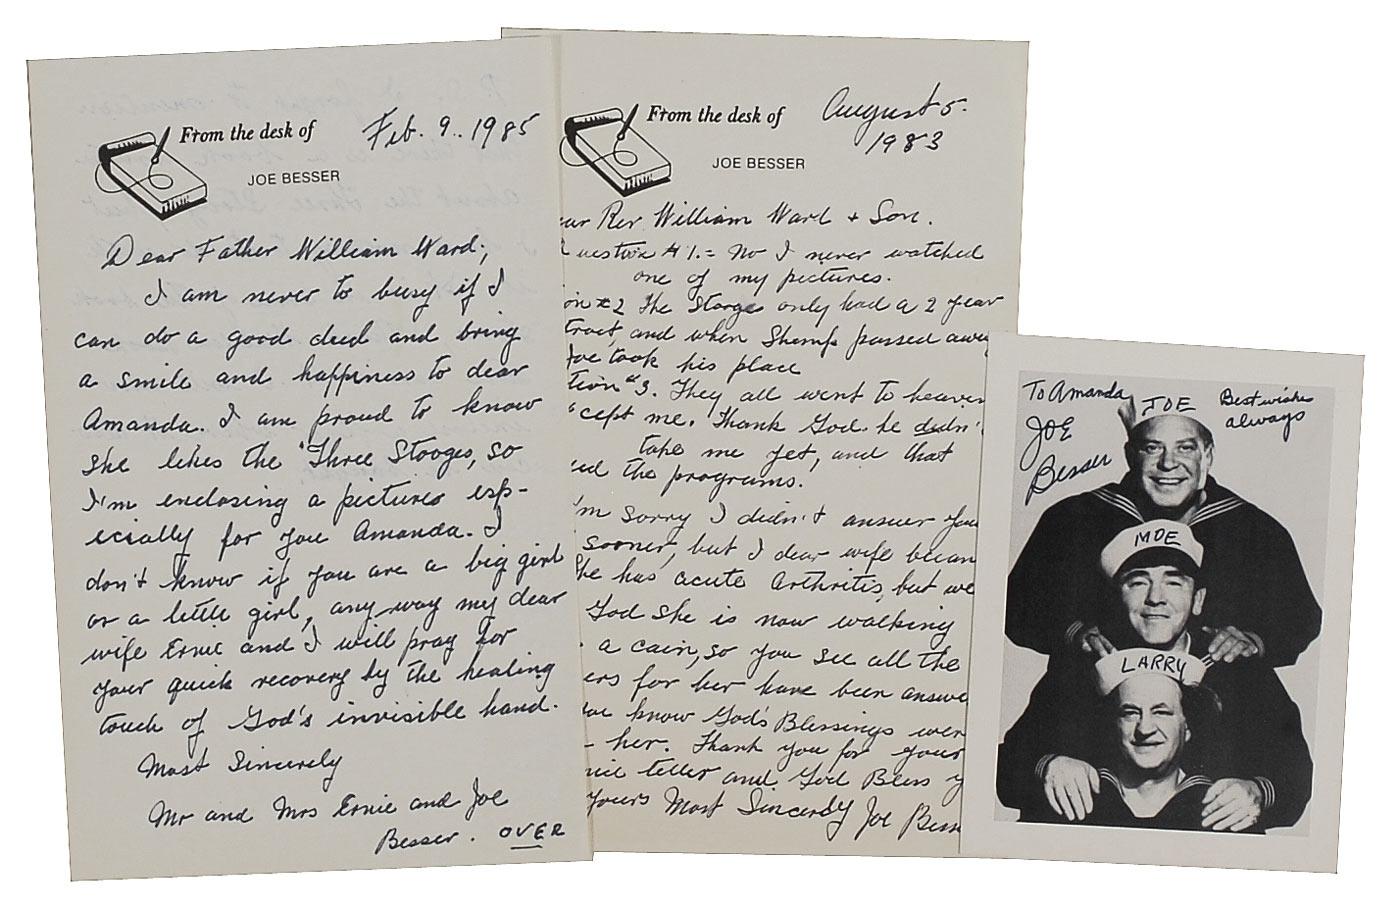 From the desk of
JOE BESSER
Feb. 9.. 1985
Dear Father William Ward;
I am never to busy if I
can do a good deed and bring
a smile and happiness to dear
Amanda. I am proud to know
she likes the "Three Stooges, so
I'm enclosing a pictures esp-
ecially for you Amanda. I
don't know if you are a big girl
or a little girl, any way my dear
wife Ernie and I will pray for
your quick recovery by the healing
touch of God's invisible hand.
Most Sincerely
Mr and Mrs Ernie and Joe
Besser. OVER
From the desk of
JOE BESSER
August 5.
1983
ear Rev William Ward + Son.
uestion #1.= No I never watched
one of my pictures.
on #2 The Stooges only had a 2 year
tract, and when Shemp passed away
Joe took his place
tion #3. They all went to heaven
cept me. Thank God he didn't
take me yet, and that
ed the programs.
'm sorry I didn't answer you
sooner, but I dear wife becam
she has acute Arthritis, but we
God she is now walking
a cain, so you see all the
ers for her have been answe
we know God's Blessings wer
her. Thank you for your
nice letter and God Bless y
Yours Most Sincerely Joe Bess
To Amanda
JOE
Besser
Best wishes
always
JOE
MOE
LARRY